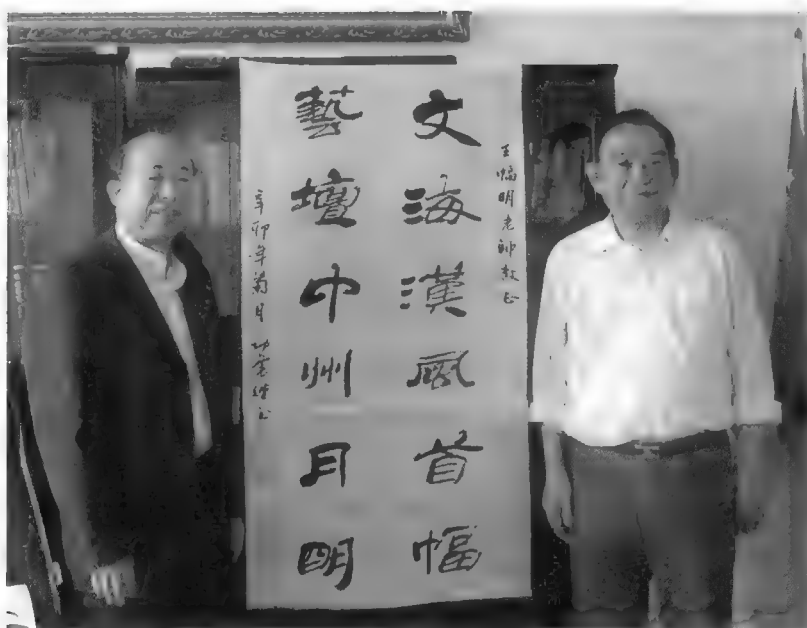 王幅明老師教正
文海漢風首幅
藝壇中州月明
辛卯年菊月